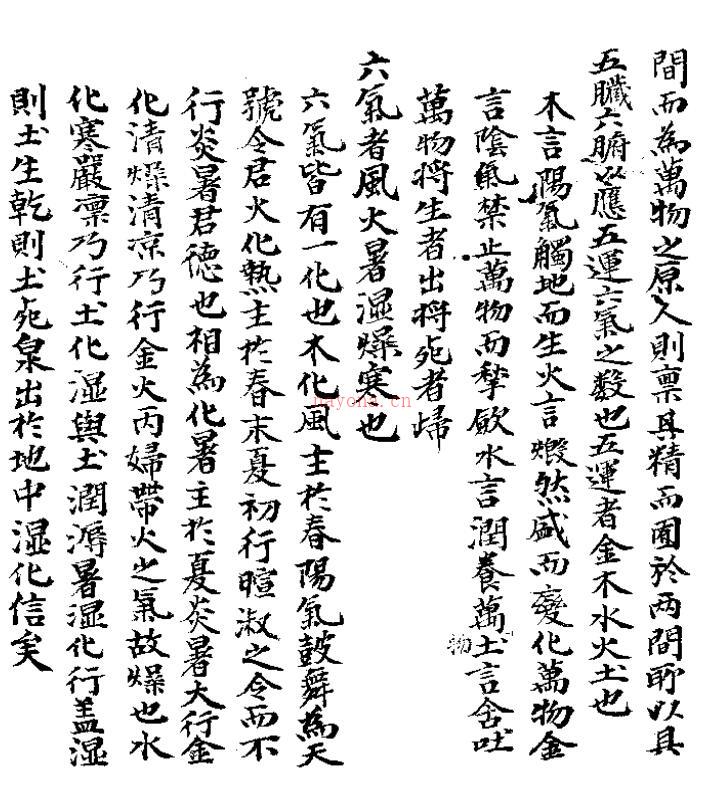 間而為萬物之原人則禀其精而囿於两間所以具
五臟六腑以應五運六氣之数也五運者金木水火土也
木言陽氣觸地而生火言煅然盛而變化萬物金
言陰氣禁止萬物而揫歛水言潤養萬物土言含吐
萬物将生者出将死者歸
六氣者風火暑湿燥寒也
六氣皆有一化也木化風主於春陽氣鼓舞為天
號令君火化熱主於春末夏初行暄淑之令而不
行炎暑君德也相為化暑主於夏炎暑大行金
化清燥清凉乃行金火丙婦帶火之氣故燥也水
化寒嚴凛乃行土化湿與土潤溽暑湿化行盖湿
則土生乾則土死泉出於地中湿化信矣
nayona.cn